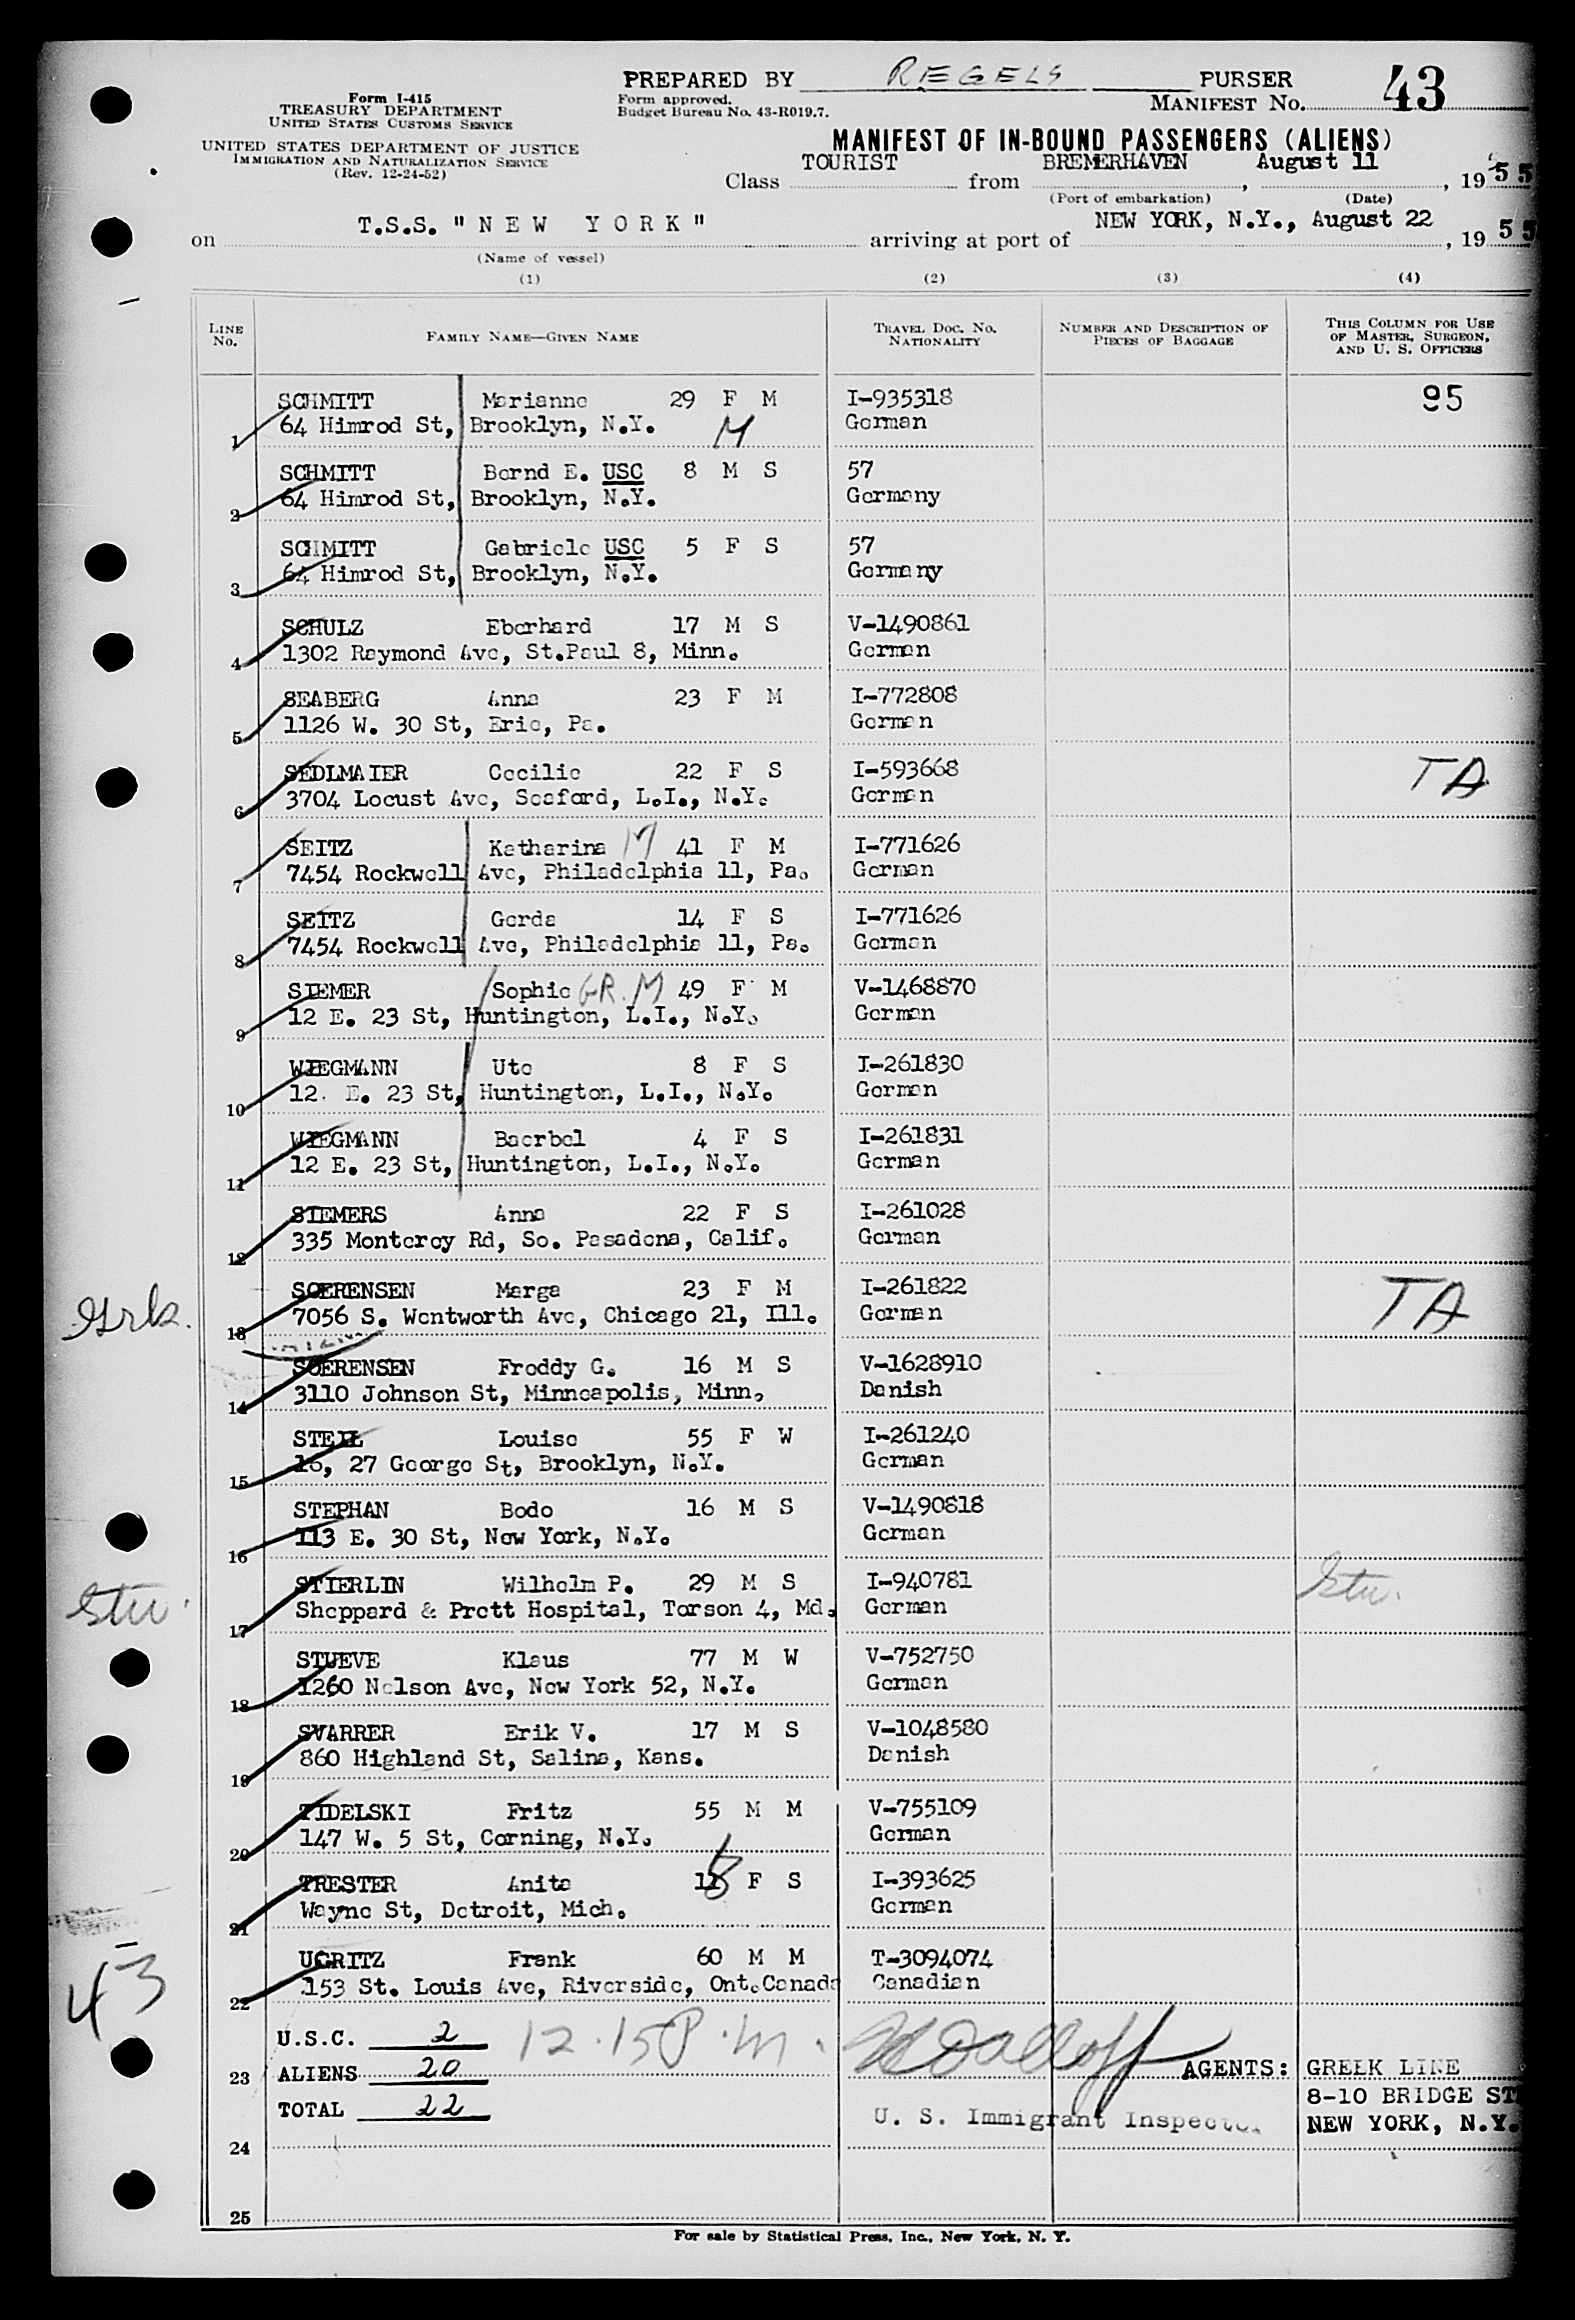 PREPARED BY REGELS PURSER
Form I-415
TREASURY DEPARTMENT
UNITED STATES CUSTOMS SERVICE
UNITED STATES DEPARTMENT OF JUSTICE
IMMIGRATION AND NATURALIZATION SERVICE
(Rev. 12-24-52)
Form approved.
Budget Bureau No. 43-R019.7.
MANIFEST NO. 43
MANIFEST OF IN-BOUND PASSENGERS (ALIENS)
Class TOURIST from BREMERHAVEN, August 11, 1955
(Port of embarkation) (Date)
on T.S.S. "NEW YORK" arriving at port of NEW YORK, N.Y., August 22, 1955
(Name of vessel)
(1) (2) (3) (4)
LINE NO. FAMILY NAME—GIVEN NAME TRAVEL DOC. NO. NATIONALITY NUMBER AND DESCRIPTION OF PIECES OF BAGGAGE THIS COLUMN FOR USE OF MASTER, SURGEON, AND U. S. OFFICERS
SCHMITT Marianne 29 F M I-935318 95
1 64 Himrod St, Brooklyn, N.Y. M German
SCHMITT Bernd E. USC 8 M S 57
2 64 Himrod St, Brooklyn, N.Y. Germany
SCHMITT Gabriele USC 5 F S 57
3 64 Himrod St, Brooklyn, N.Y. Germany
SCHULZ Eberhard 17 M S V-1490861
4 1302 Raymond Ave, St.Paul 8, Minn. German
SEABERG Anna 23 F M I-772808
5 1126 W. 30 St, Erie, Pa. German
SEDLMAIER Cecilie 22 F S I-593668 TA
6 3704 Locust Ave, Seaford, L.I., N.Y. German
SEITZ Katharina M 41 F M I-771626
7 7454 Rockwell Ave, Philadelphia 11, Pa. German
SEITZ Gerda 14 F S I-771626
8 7454 Rockwell Ave, Philadelphia 11, Pa. German
SIEMER Sophie GR. M 49 F M V-1468870
9 12 E. 23 St, Huntington, L.I., N.Y. German
WIEGMANN Ute 8 F S I-261830
10 12. E. 23 St, Huntington, L.I., N.Y. German
WIEGMANN Baerbel 4 F S I-261831
11 12 E. 23 St, Huntington, L.I., N.Y. German
SIEMERS Anna 22 F S I-261028
12 335 Monterey Rd, So. Pasadena, Calif. German
SOERENSEN Marga 23 F M I-261822 TA
13 7056 S. Wentworth Ave, Chicago 21, Ill. German
SOERENSEN Freddy G. 16 M S V-1628910
14 3110 Johnson St, Minneapolis, Minn. Danish
STEIL Louise 55 F W I-261240
15 16, 27 George St, Brooklyn, N.Y. German
STEPHAN Bodo 16 M S V-1490818
16 113 E. 30 St, New York, N.Y. German
STIERLIN Wilhelm P. 29 M S I-940781 Stu.
Stu. 17 Sheppard & Prett Hospital, Torson 4, Md. German
STUEVE Klaus 77 M W V-752750
18 1260 Nelson Ave, New York 52, N.Y. German
SVARRER Erik V. 17 M S V-1048580
19 860 Highland St, Salina, Kans. Danish
TIDELSKI Fritz 55 M M V-755109
20 147 W. 5 St, Corning, N.Y. German
TRESTER Anita F S I-393625
21 Wayne St, Detroit, Mich. German
UGRITZ Frank 60 M M T-3094074
22 153 St. Louis Ave, Riverside, Ont.Canada Canadian
43
U.S.C. 2 12.15 P.m.
23 ALIENS 20 AGENTS: GREEK LINE
TOTAL 22 8-10 BRIDGE ST
U. S. Immigrant Inspector NEW YORK, N.Y.
24
25
For sale by Statistical Press, Inc., New York, N. Y.